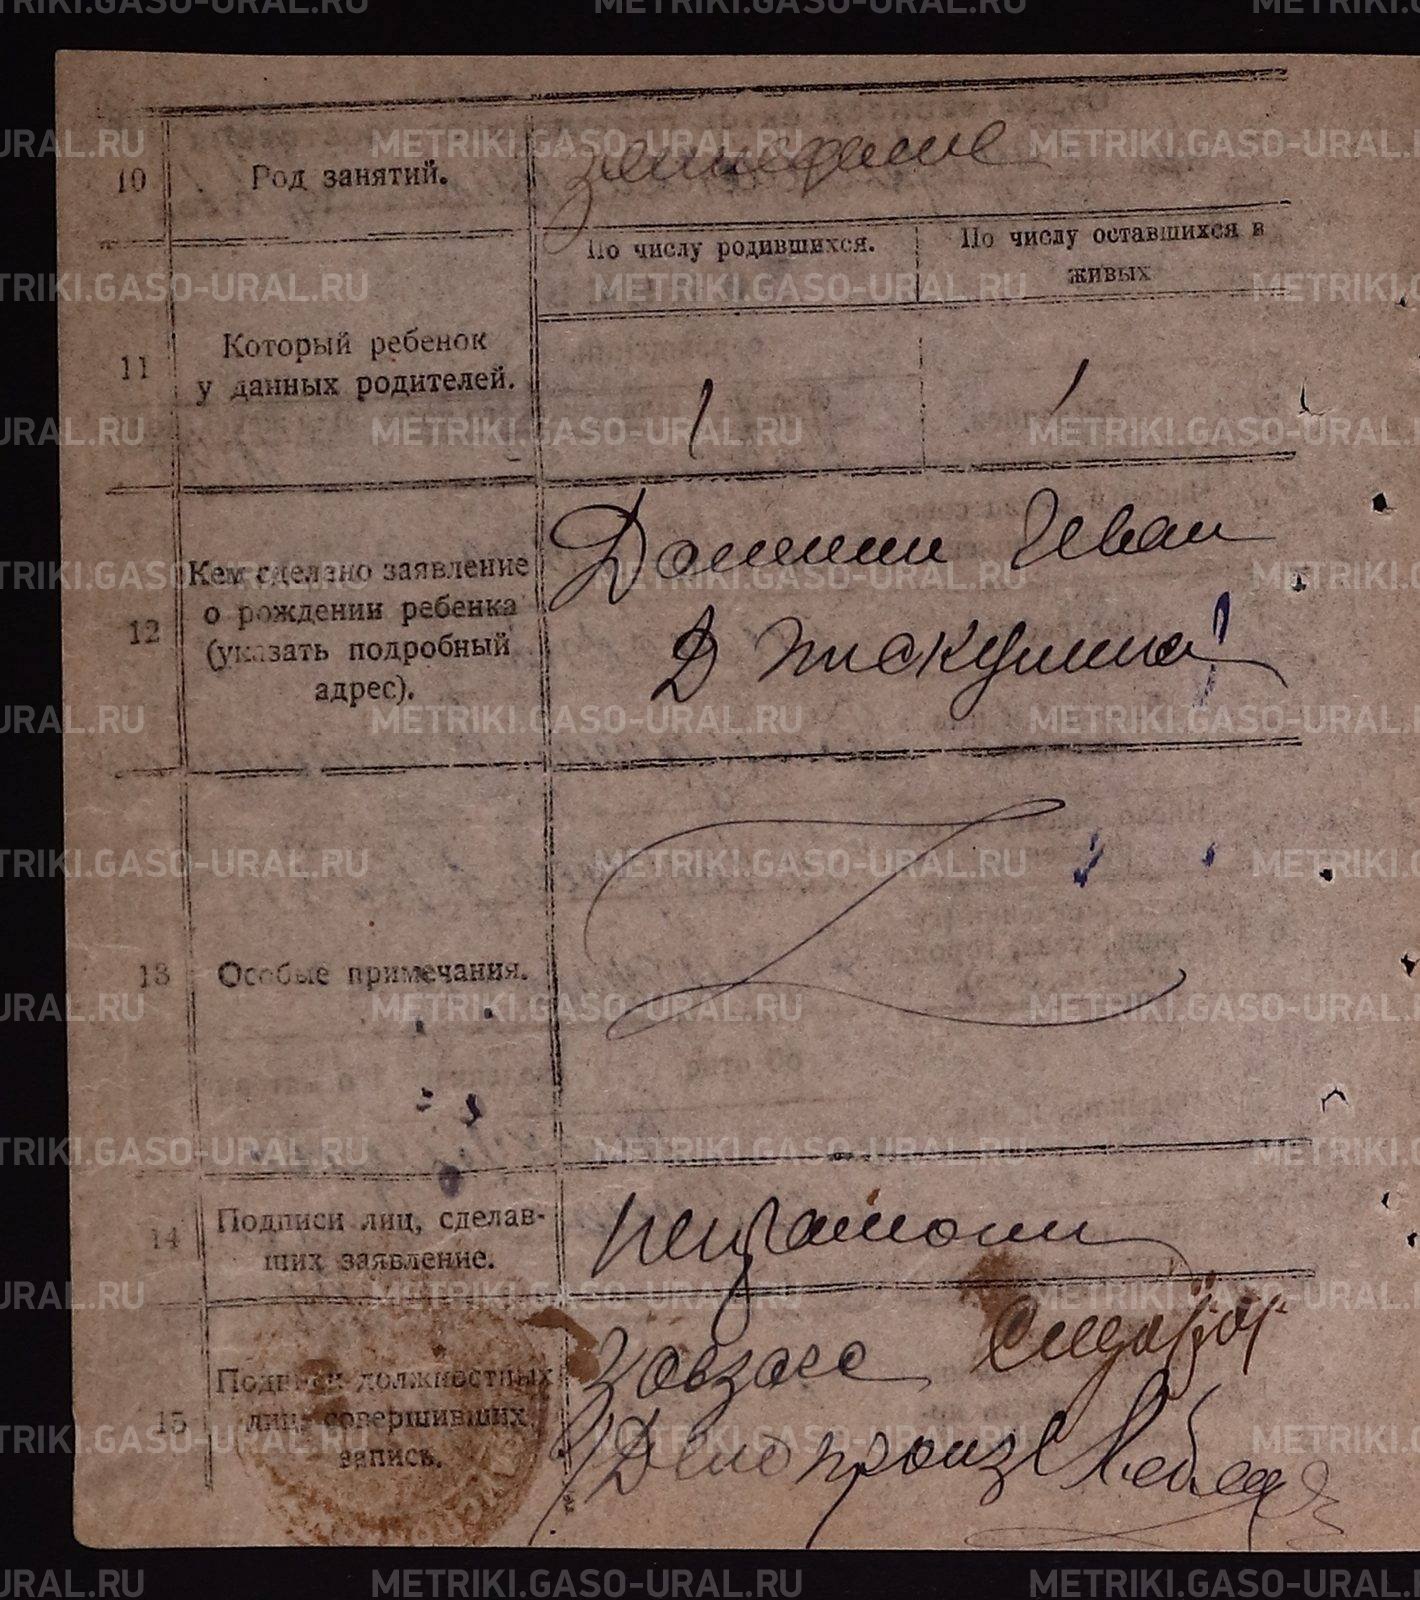 10 Род занятий.
По числу родившихся. По числу оставшихся в
живых
11 Который ребенок
у данных родителей.
1 1
12 Кем сделано заявление
о рождении ребенка
(указать подробный
адрес).
Иван
Д
13 Особые примечания.
14 Подписи лиц, сделав-
ших заявление.
неграмотн
15 Подписи должностных
лиц, совершивших
запись.
Завзагс
Делопроиз
METRIKI.GASO-URAL.RU